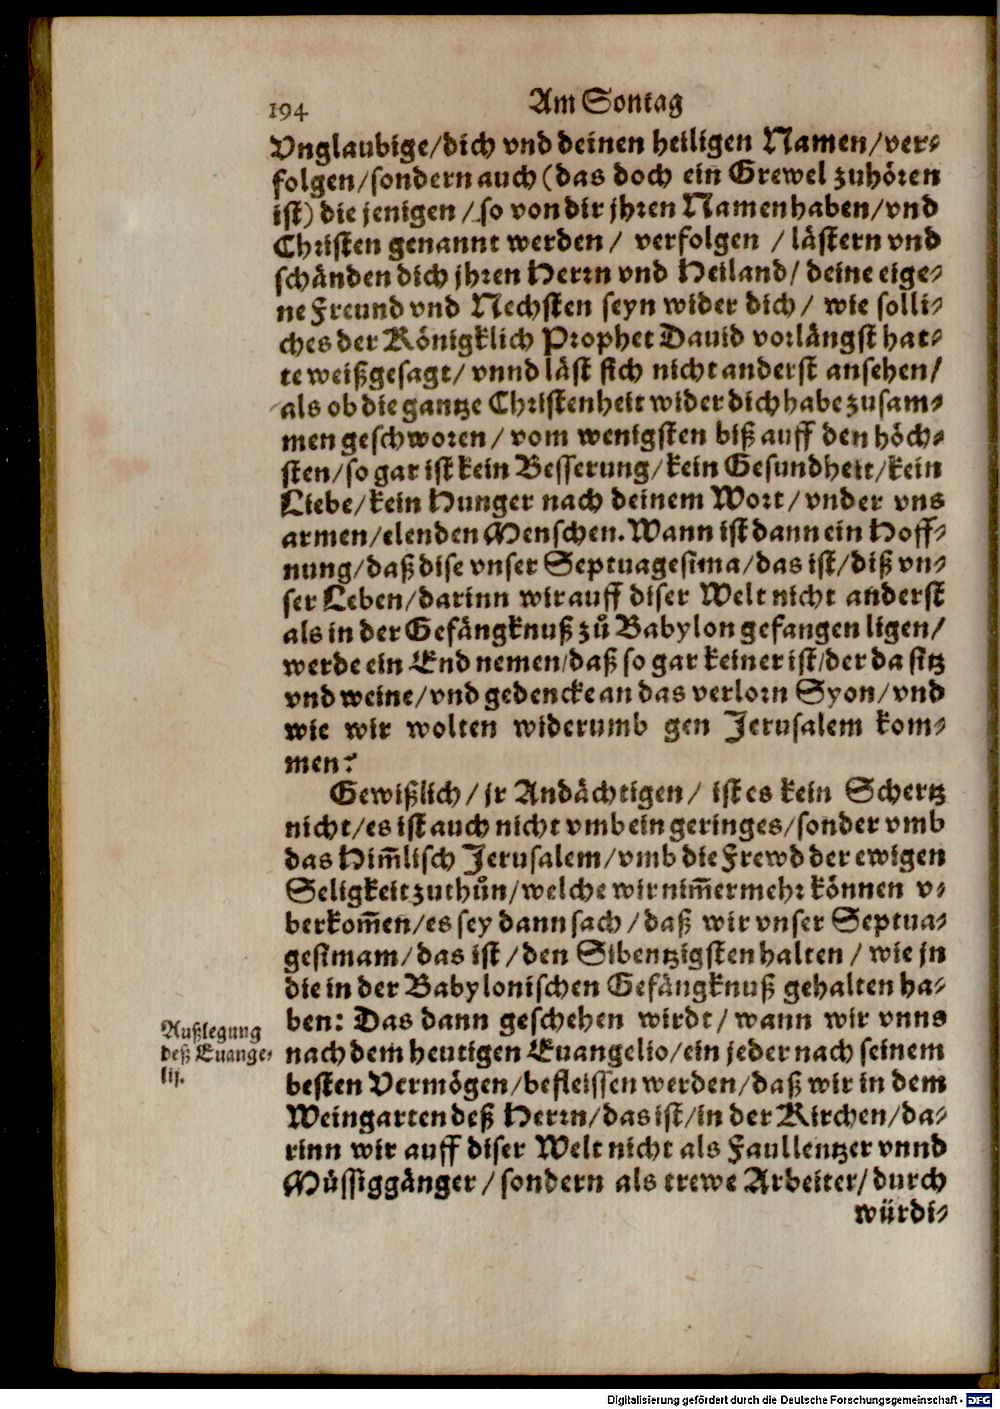 194 Am Sontag
Vnglaubige/dich vnd deinen heiligen Namen/ver⸗
folgen/sondern auch (das doch ein Grewel zuhören
ist) die jenigen/so von dir jhren Namen haben/vnd
Christen genannt werden/ verfolgen /lästern vnd
schänden dich jhren Herrn vnd Heiland/ deine eige⸗
ne Freund vnd Nechsten seyn wider dich/ wie solli⸗
ches der Königklich Prophet Dauid vorlängst hat⸗
te weißgesagt/ vnnd läst sich nicht anderst ansehen/
als ob die gantze Christenheit wider dich habe zusam⸗
men geschworen/ vom wenigsten biß auff den höch⸗
sten/so gar ist kein Besserung/kein Gesundheit/kein
Liebe/kein Hunger nach deinem Wort/ vnder vns
armen/elenden Menschen. Wann ist dann ein Hoff⸗
nung/daß dise vnser Septuagesima/das ist/diß vn⸗
ser Leben/darinn wir auff diser Welt nicht anderst
als in der Gefängknuß zů Babylon gefangen ligen/
werde ein End nemen/daß so gar keiner ist/der da sitz
vnd weine/vnd gedencke an das verlorn Syon/vnd
wie wir wolten widerumb gen Jerusalem kom⸗
men?
Gewißlich/ jr Andächtigen/ ist es kein Schertz
nicht/es ist auch nicht vmb ein geringes/sonder vmb
das Him̄lisch Jerusalem/vmb die Frewd der ewigen
Seligkeit zuthůn/welche wir nim̄ermehr können v⸗
berkom̄en/es sey dann sach/daß wir vnser Septua⸗
gesimam/das ist/den Sibentzigsten halten/ wie jn
die in der Babylonischen Gefängknuß gehalten ha⸗
ben: Das dann geschehen wirdt/ wann wir vnns
nach dem heutigen Euangelio/ein jeder nach seinem
besten Vermögen/befleissen werden/daß wir in dem
Weingarten deß Herrn/das ist/in der Kirchen/da⸗
rinn wir auff diser Welt nicht als Faullentzer vnnd
Müssiggänger/sondern als trewe Arbeiter/durch
würdi⸗
Außlegung
deß Euange⸗
lij.
Digitalisierung gefördert durch die Deutsche Forschungsgemeinschaft - DFG